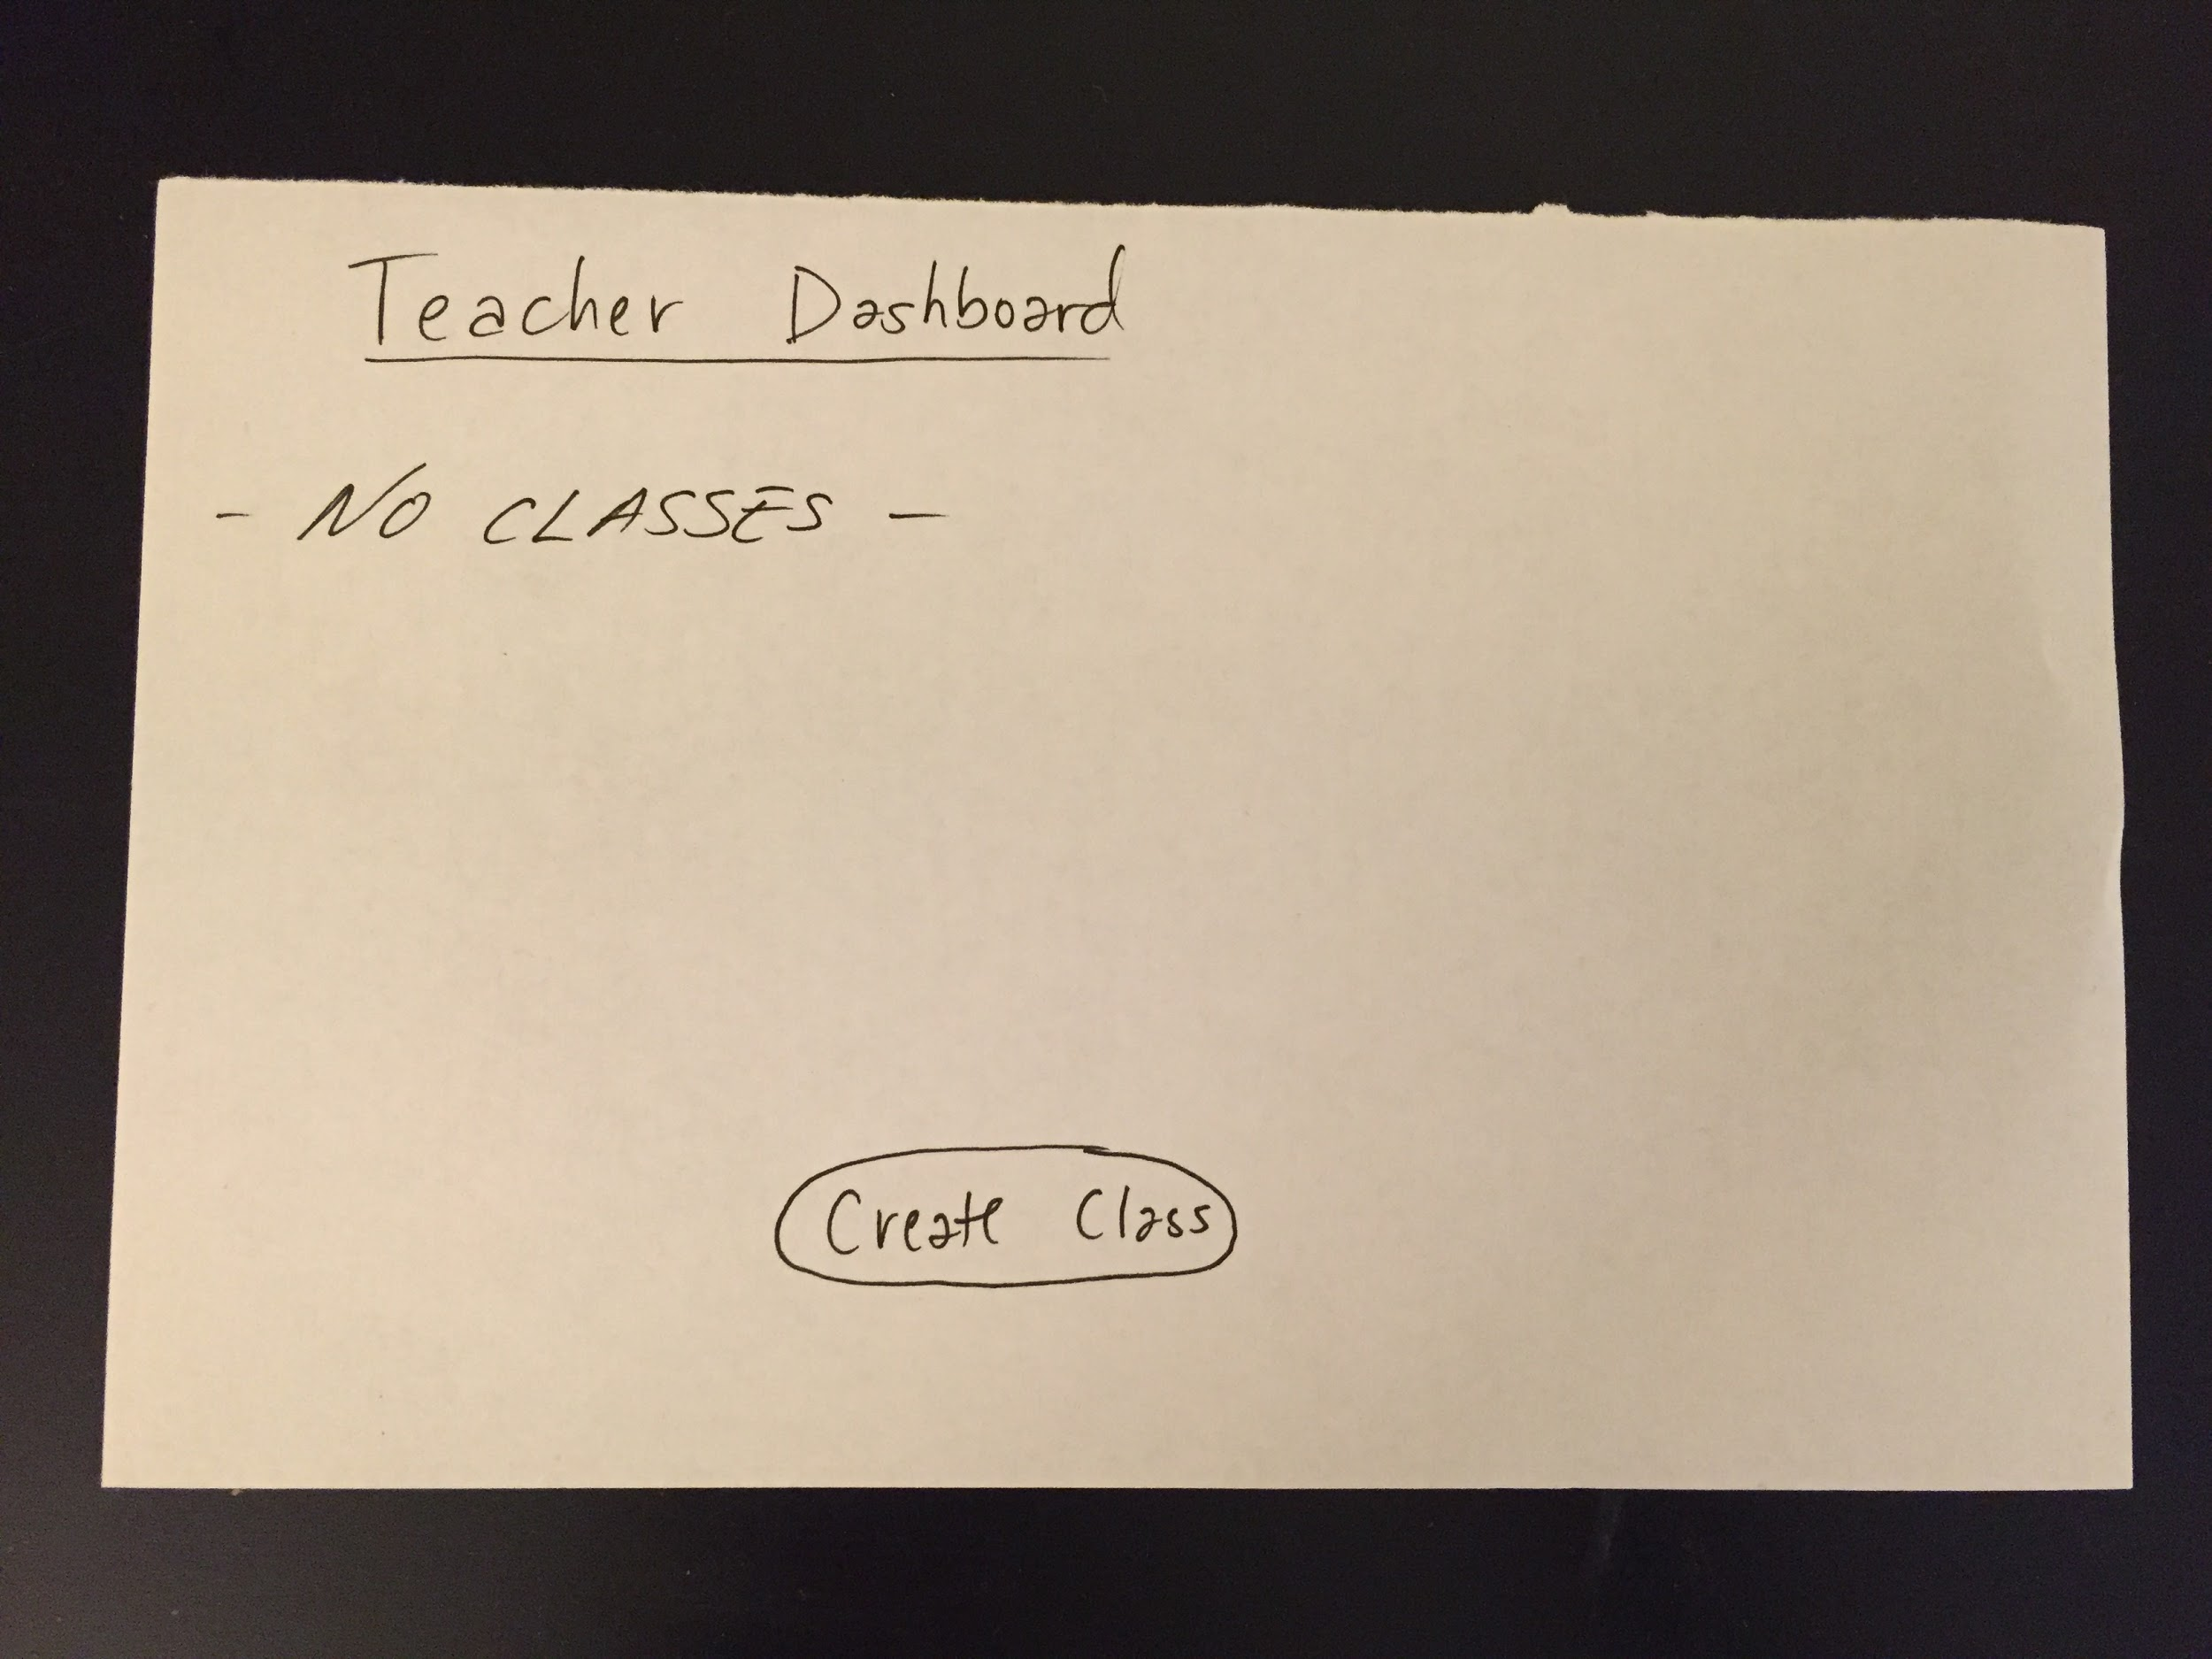 Teacher Dashboard
- NO CLASSES -
Create Class